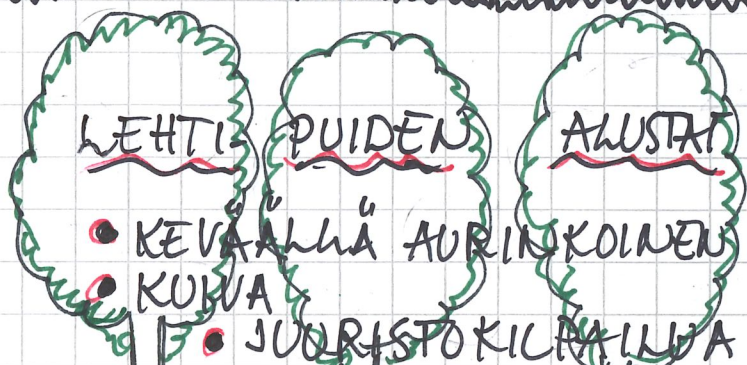 LEHTI- PUIDEN ALUSTAT
• KEVÄÄLLÄ AURINKOINEN
• KUIVA
• JUURISTOKILPAILUA